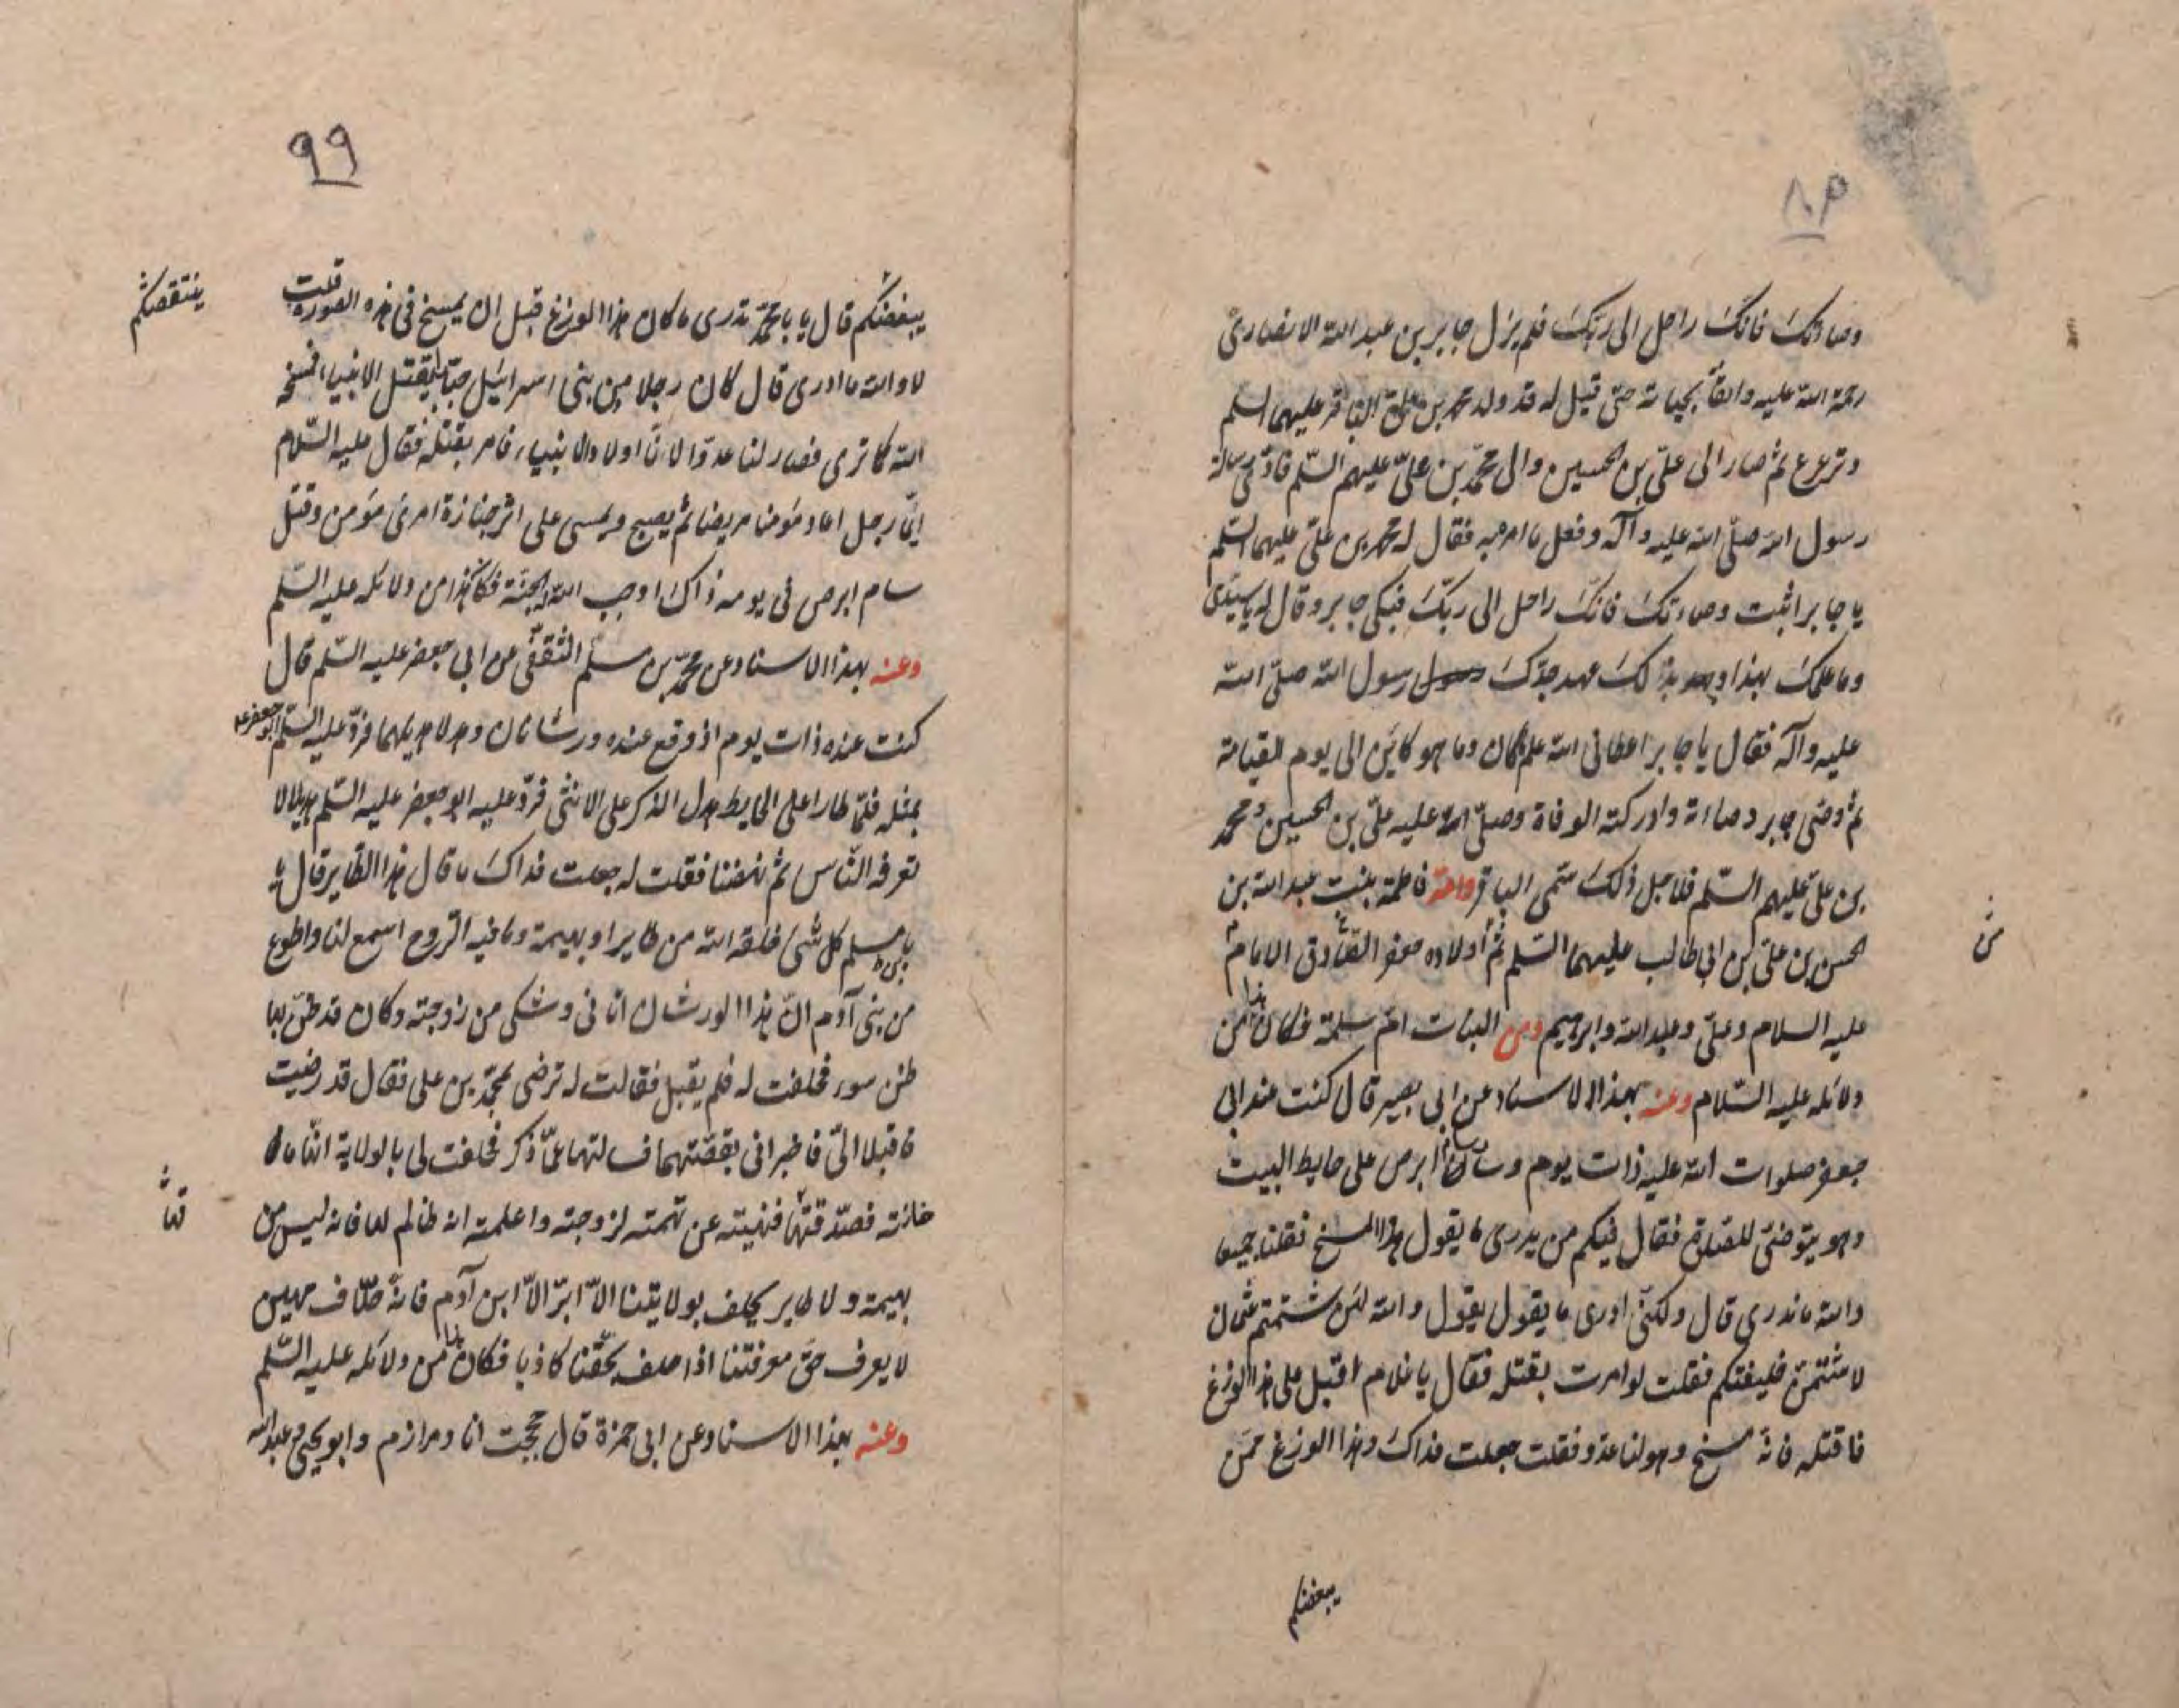 وصاتك فانك راحل الى ربك فلم يزل جابر بن عبد الله الانصارى
رحمة الله عليه واثقا بحياته حتى قيل له قد ولد محمد بن على الباقر عليهما السلم
وترعرع ثم صار الى على بن الحسين والى محمد بن على عليهم السلم فادى رسالة
رسول الله صلى الله عليه وآله وفعل ما امر به فقال له محمد بن على عليهما السلم
يا جابر اثبت وصاتك فانك راحل الى ربك فبكى جابر وقال له يا سيدى
وما علمك بهذا وبعد بذلك عهد جدك رسول الله صلى الله
عليه وآله فقال يا جابر اعطانى الله علم ما كان وما هو كاين الى يوم القيامة
ثم وصى جابر وصاته وادركته الوفاة وصلى الله عليه على بن الحسين ومحمد
بن على عليهم السلم فلاجل ذلك سمى الباقر وامه فاطمة بنت عبد الله بن
الحسن بن على بن ابى طالب عليهما السلم ثم اولاده جعفر الصادق الامام
عليه السلام وعلى وعبد الله وابرهيم ومن البنات ام سلمة فكان هذا من
دلائله عليه السلام وعنه بهذا الاسناد عن ابى بصير قال كنت عند ابى
جعفر صلوات الله عليه ذات يوم وسام ابرص على حايط البيت
وهو يتوضى للصلوة فقال فيكم من يدرى ما يقول هذا المسخ فقلنا جميعا
والله ما ندرى قال ولكنى ادرى ما يقول يقول والله لئن شتمتم عثمان
لاشتمن خليفتكم فقلت لو امرت بقتله فقال يا غلام اقبل على هذا الوزغ
فاقتله فانه مسخ وهو لنا عدو فقلت جعلت فداك وهذا الوزغ ممن
يبغضكم
يبغضكم قال يا با محمد تدرى ما كان هذا الوزغ قبل ان يمسخ فى هذه الصورة قلت
ينتقصكم
لا والله ما ادرى قال كان رجلا من بنى اسرائيل يقتل الانبياء فمسخه
الله كما ترى فصار لنا عدوا لانا اولاد الانبياء فامر بقتله فقال عليه السلام
ايما رجل اعاد مؤمنا مريضا ثم يصبح ويمسى على اثر جنازة امرئ مؤمن وقتل
سام ابرص فى يومه ذاك اوجب الله له الجنة فكان هذا من دلائله عليه السلم
وعنه بهذا الاسناد عن محمد بن مسلم الثقفى عن ابى جعفر عليه السلم قال
كنت عنده ذات يوم اذ وقع عنده ورشانان وهدلا هديلهما فرد عليه السلم ابو جعفر ع
بمثله فلما طارا على الحايط هدل الذكر على الانثى فرد عليه ابو جعفر عليه السلم هديلا لا
تعرفه الناس ثم نهضنا فقلت له جعلت فداك ما قال هذا الطاير قال
يا بن مسلم كل شئ خلقه الله من طاير او بهيمة وما فيه الروح اسمع لنا واطوع
من بنى آدم ان هذا الورشان اتانى وشكى من زوجته وكان قد ظن بها
ظن سوء فحلفت له فلم يقبل فقالت له ترضى بمحمد بن على فقال قد رضيت
فاقبلا الى فاخبرانى بقصتهما فسالتهما عما ذكر فحلفت لى بالولاية انها ما
خانته فصدقتها فنهيته عن تهمته لزوجته واعلمته انه ظالم لها فانه ليس من
بهيمة ولا طاير يحلف بولايتنا الا ابر الا ابن آدم فانه حلاف مهين
لا يعرف حق معرفتنا اذا حلف بحقنا كاذبا فكان هذا من دلائله عليه السلم
وعنه بهذا الاسناد عن ابى حمزة قال حججت انا ومرازم وابو يحيى وعبد الله
٩٩